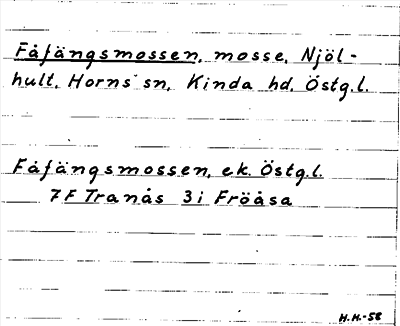 Fåfängsmossen, mosse, Njöl-
hult, Horns sn, Kinda hd, Östg.l.
Fåfängsmossen, ek. Östg.l.
7F Tranås 3i Fröåsa
H.H.-58